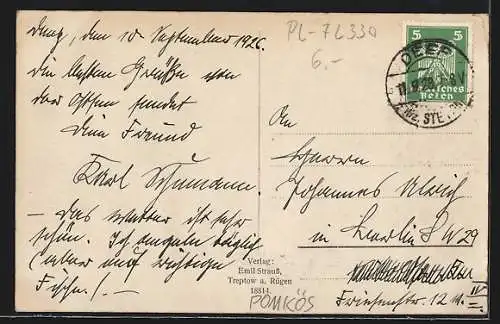 Deep, den 10 September 1926
die besten Grüße von
der Ostsee sendet
Dein Freund
Karl Schumann.
– Das Wetter ist sehr
schön. Ich angele täglich
(aber auf richtige
Fische!) –
PL-72330
6.-
5 5
Deutsches
Reich
DEEP
Bez. STE
An
Herrn
Johannes Ulrich
in Berlin SW 29
Friesenstr. 12 IV
Verlag:
Emil Strauß,
Treptow a. Rügen
18814
POMKÖS